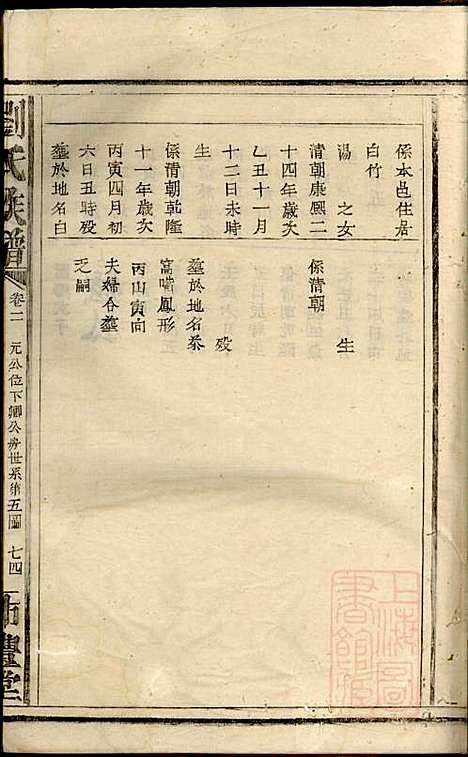 係本邑住居
白竹
湯　之女　生
清朝康熙二
十四年歲次
乙丑十一月
十二日未時
生
係清朝乾隆
十一年歲次
丙寅四月初
六日丑時殁
塟於地名白
係清朝
殁
塟於地名乔
窩嘯鳳形
丙山寅向
夫婦合塟
乏嗣
劉氏族譜
卷二
元公位下卿公房世系第五圖
七四
豐堂
上海圖
書館藏